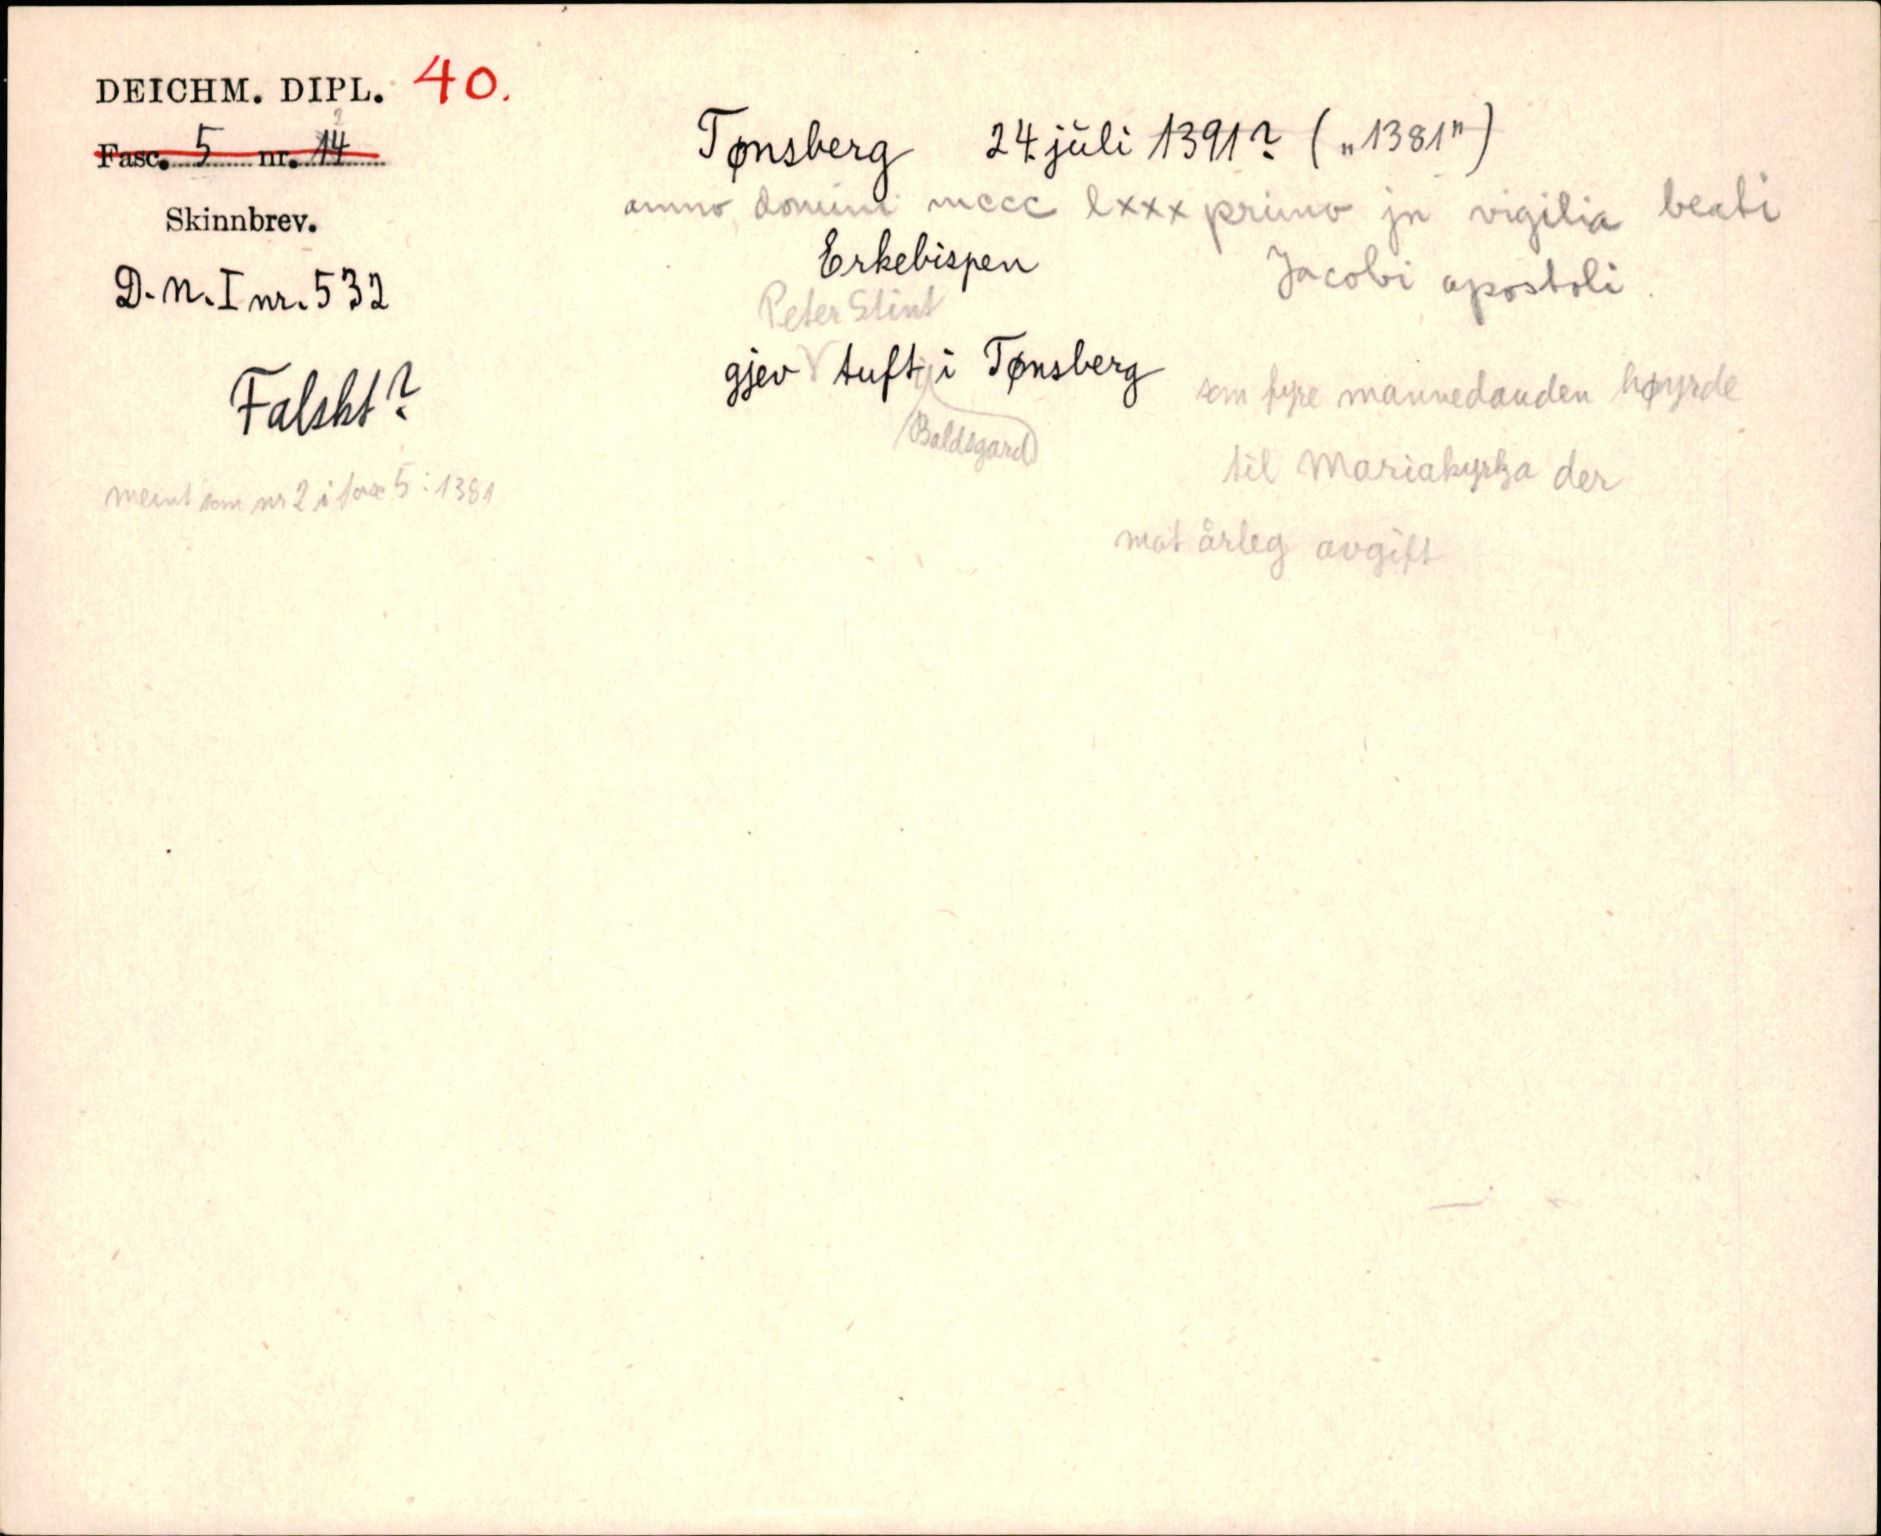 DEICHM. DIPL. 40.
Fasc. 5 nr. 14
2
Skinnbrev.
D.N. I nr. 532
Falskt?
meint som nr 2 i fasc 5: 1381
Tønsberg 24. juli 1391? („1381")
anno domini mccc lxxx primo jn vigilia beati
Jacobi apostoli.
Erkebispen
Peter Stint
gjev V tuft i Tønsberg som fyre mannedauden høyrde
(Baldsgard)
til Mariakyrkja der
mot årleg avgift